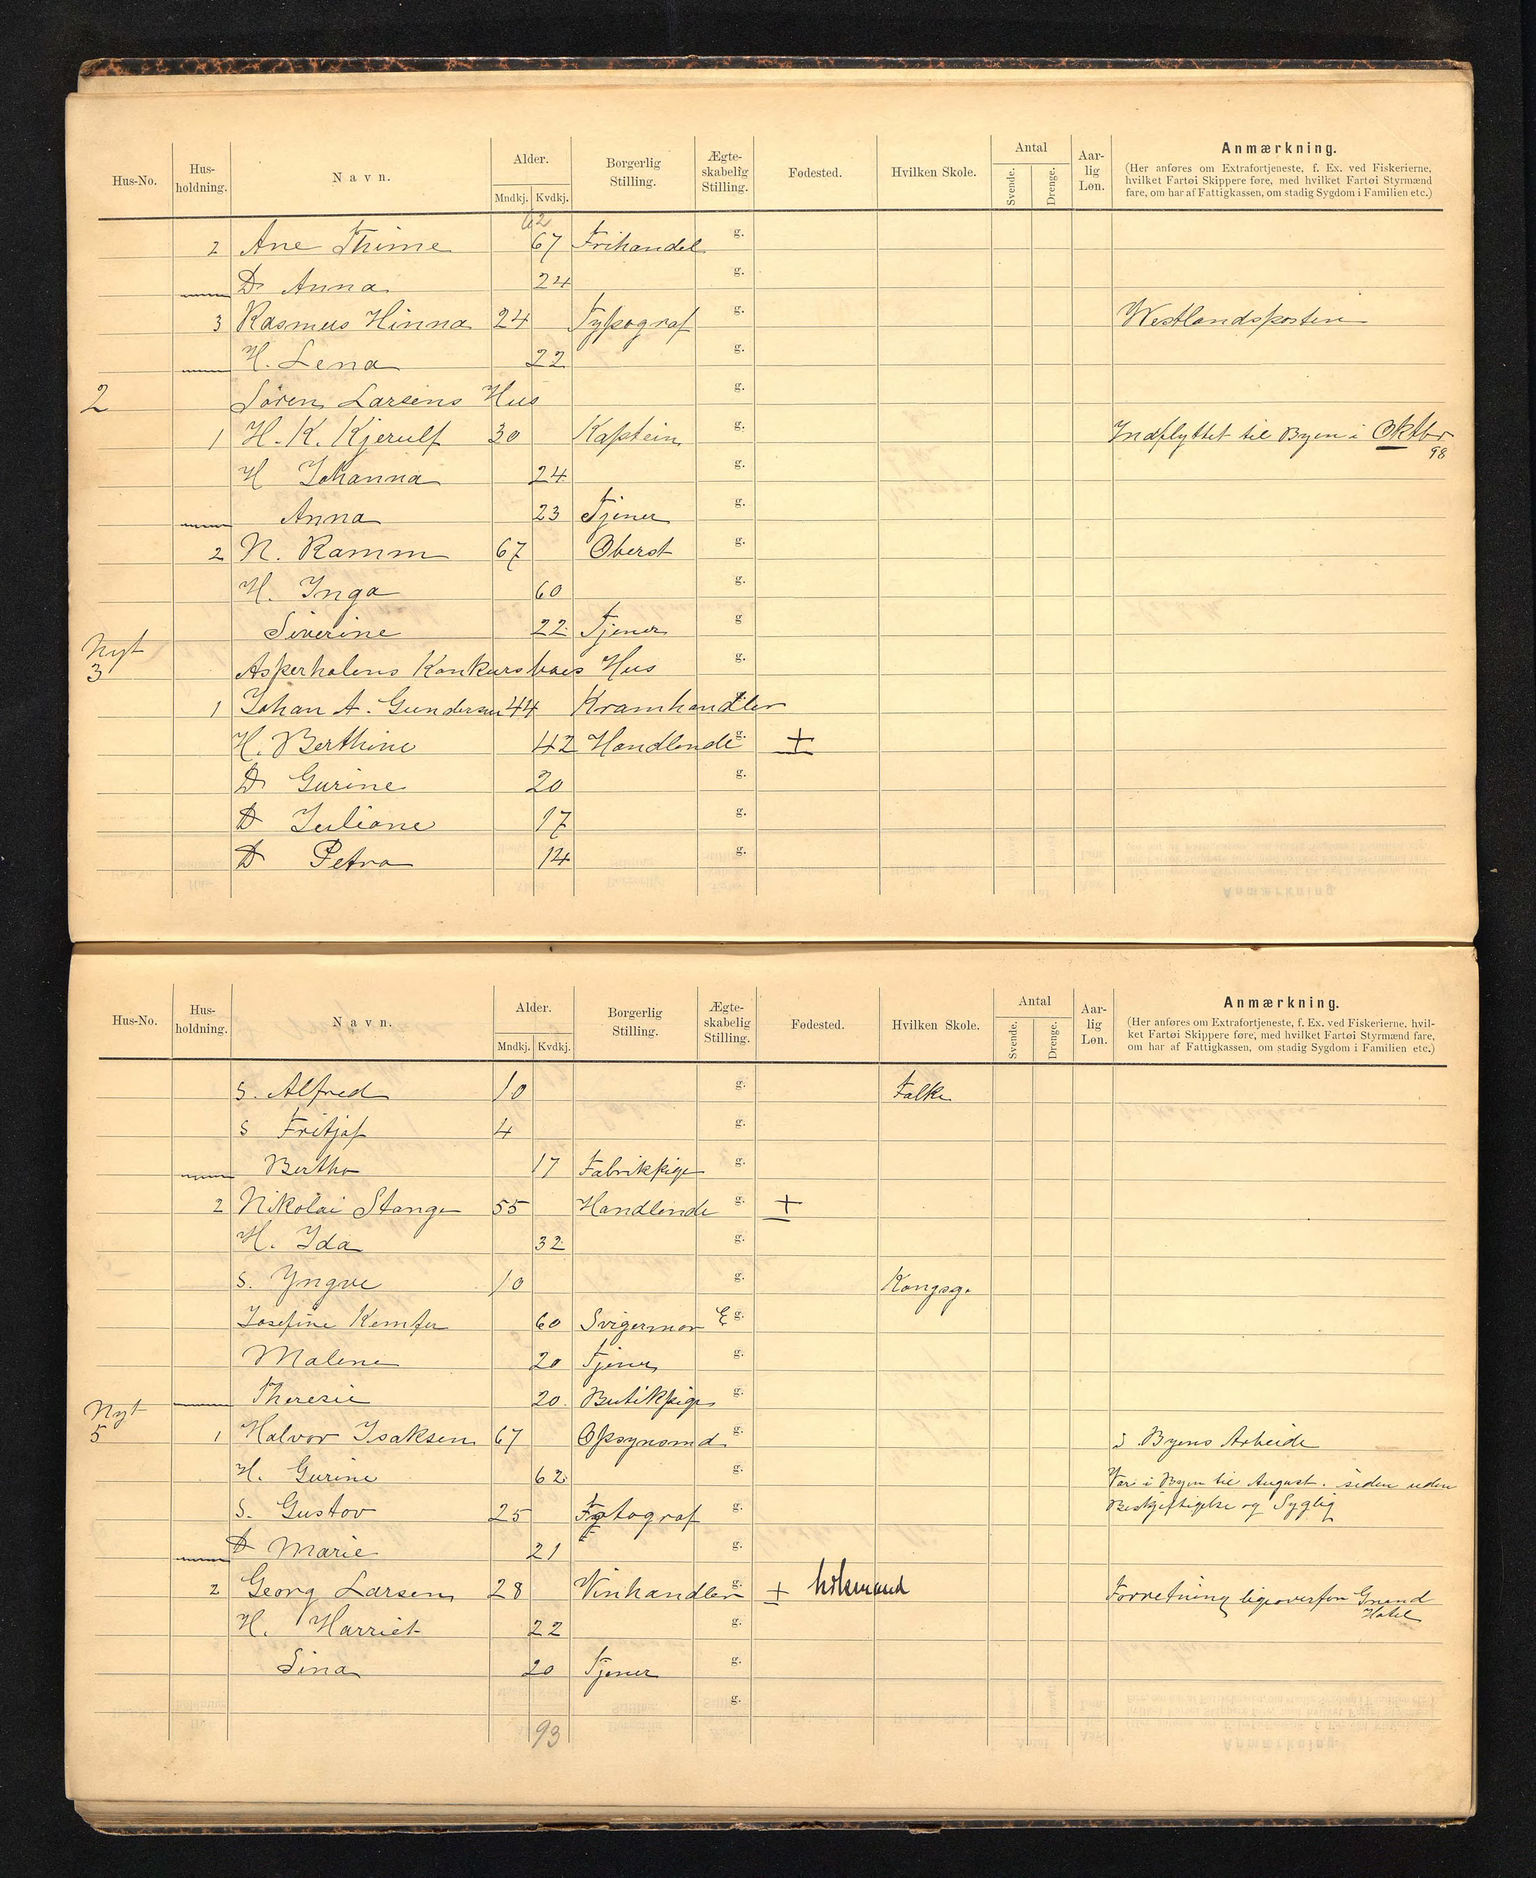 Hus-No. Hus-holdning. Navn. Alder. Mndkj. Kvdkj. Borgerlig Stilling. Ægte-skabelig Stilling. Fødested. Hvilken Skole. Antal Svende. Drenge. Aar-lig Løn. Anmærkning.
(Her anføres om Extrafortjeneste, f. Ex. ved Fiskerierne,
hvilket Fartøi Skippere føre, med hvilket Fartøi Styrmænd
fare, om har af Fattigkassen, om stadig Sygdom i Familien etc.)
62
2 Ane Thime 67 Frihandel g.
D. Anna 24 g.
3 Rasmus Hinna 24 Typograf g. Westlandsposten
H. Lena 22 g.
2 Sören Larsens Hus g.
1 H. K. Kjerulf 30 Kaptein g. Indflyttet til Byen i Oktbr 98
H Johanna 24 g.
Anna 23 Tjener g.
2 N. Ramm 67 Oberst g.
H. Inga 60 g.
Siverine 22 Tjener g
Nyt
3 Askerholens Konkursboes Hus g.
1 Johan A. Gundersen 44 Kramhandler g.
H. Berthine 42 Handlende g. +
D Gurine 20 g.
D Juliane 17 g.
D Petra 14 g.
Hus-No. Hus-holdning. Navn. Alder. Mndkj. Kvdkj. Borgerlig Stilling. Ægte-skabelig Stilling. Fødested. Hvilken Skole. Antal Svende. Drenge. Aar-lig Løn. Anmærkning.
(Her anføres om Extrafortjeneste, f. Ex. ved Fiskerierne, hvil-
ket Fartøi Skippere føre, med hvilket Fartøi Styrmænd fare,
om har af Fattigkassen, om stadig Sygdom i Familien etc.)
S. Alfred 10 g. Folke
S Fritjof 4 g.
Bertha 17 Fabrikpige g.
2 Nikolai Stange 55 Handlende g. +
H. Ida 32 g.
S. Yngve 10 g. Kongsg.
Josefine Kemfer 60 Svigermor E g.
Malene 20 Tjener g.
Theresie 20 Butikpige g.
Nyt
5 1 Halvor Isaksen 67 Opsynsmd g. S Byens Arbeide
H. Gurine 62 g. Var i Byen til August. siden uden
S. Gustav 25 g. Beskjeftigelse og Syglig
D Marie 21 g.
2 Georg Larsen 28 Vinhandler g. + Forretning ligeoverfor Grand Hotel
H. Harriet 22 g.
Sina 20 Tjener g.
g.
93